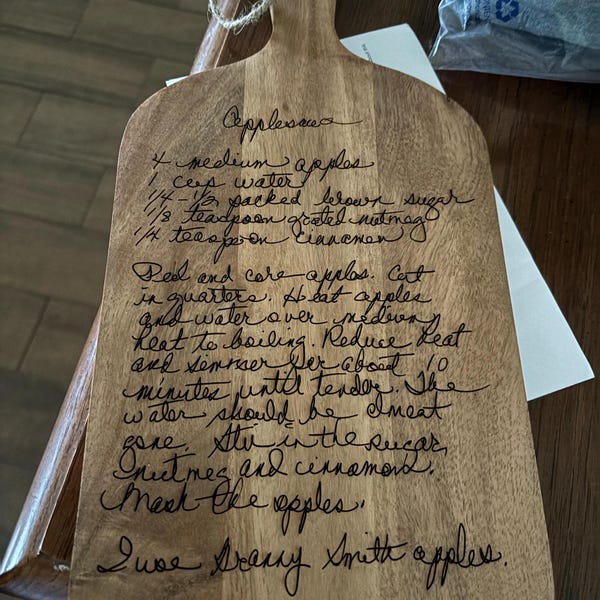 Applesauce
4 medium apples
1 cup water
1/4 - 1/2 packed brown sugar
1/8 teaspoon grated nutmeg
1/4 teaspoon cinnamon
Peel and core apples. Cut
in quarters. Heat apples
and water over medium
heat to boiling. Reduce heat
and simmer for about 10
minutes until tender. The
water should be almost
gone. Stir in the sugar,
nutmeg and cinnamon.
Mash the apples.
I use Granny Smith apples.